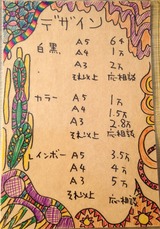 デザイン
白黒 A5 6千
A4 1万
A3 2万
それ以上 応相談
カラー A5 1万
A4 1.5万
A3 2.8万
それ以上 応相談
レインボー A5 3.5万
A4 4万
A3 5万
それ以上 応相談